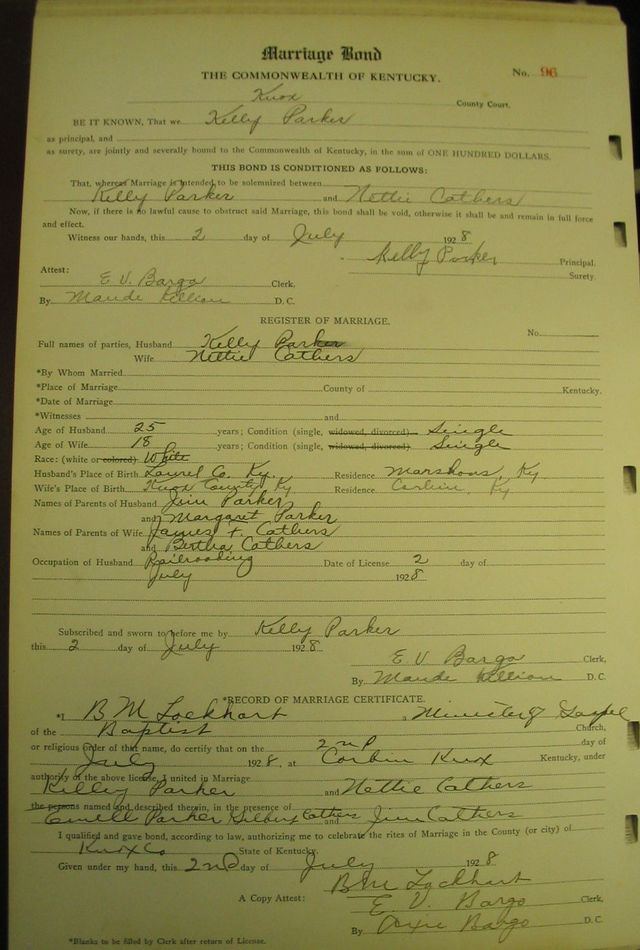 Marriage Bond
THE COMMONWEALTH OF KENTUCKY.
No. 96
Knox County Court.
BE IT KNOWN, That we Kelly Parker
as principal, and
as surety, are jointly and severally bound to the Commonwealth of Kentucky, in the sum of ONE HUNDRED DOLLARS.
THIS BOND IS CONDITIONED AS FOLLOWS:
That, whereas Marriage is intended to be solemnized between
Kelly Parker and Nettie Cathers
Now, if there is no lawful cause to obstruct said Marriage, this bond shall be void, otherwise it shall be and remain in full force
and effect.
Witness our hands, this 2 day of July 1928
Kelly Parker Principal.
Surety.
Attest:
E. V. Bargo Clerk,
By Maude Killion D. C.
REGISTER OF MARRIAGE.
No.
Full names of parties, Husband Kelly Parker
Wife Nettie Cathers
*By Whom Married
*Place of Marriage County of Kentucky.
*Date of Marriage
*Witnesses and
Age of Husband 25 years; Condition (single, widowed, divorced) Single
Age of Wife 18 years; Condition (single, widowed, divorced) Single
Race: (white or colored) White
Husband's Place of Birth Laurel Co. Ky. Residence Ky
Wife's Place of Birth Knox County Ky Residence Corbin, Ky
Names of Parents of Husband Jim Parker
and Margaret Parker
Names of Parents of Wife James F. Cathers
and Bertha Cathers
Occupation of Husband Railroading Date of License 2 day of
July 1928
Subscribed and sworn to before me by Kelly Parker
this 2 day of July 1928
E. V. Bargo Clerk,
By Maude Killion D. C.
*RECORD OF MARRIAGE CERTIFICATE.
*I B M Lockhart, a Minister of Gospel
of the Baptist Church,
or religious Order of that name, do certify that on the 2nd day of
July 1928, at Corbin Knox Kentucky, under
authority of the above license, I united in Marriage
Kelley Parker and Nettie Cathers
the persons named and described therein, in the presence of
Parker Cathers and Jim Cathers
I qualified and gave bond, according to law, authorizing me to celebrate the rites of Marriage in the County (or city) of
Knox Co State of Kentucky.
Given under my hand, this 2nd day of July 1928
B M Lockhart
A Copy Attest: E. V. Bargo Clerk,
By Dixie Bargo D. C.
*Blanks to be filled by Clerk after return of License.